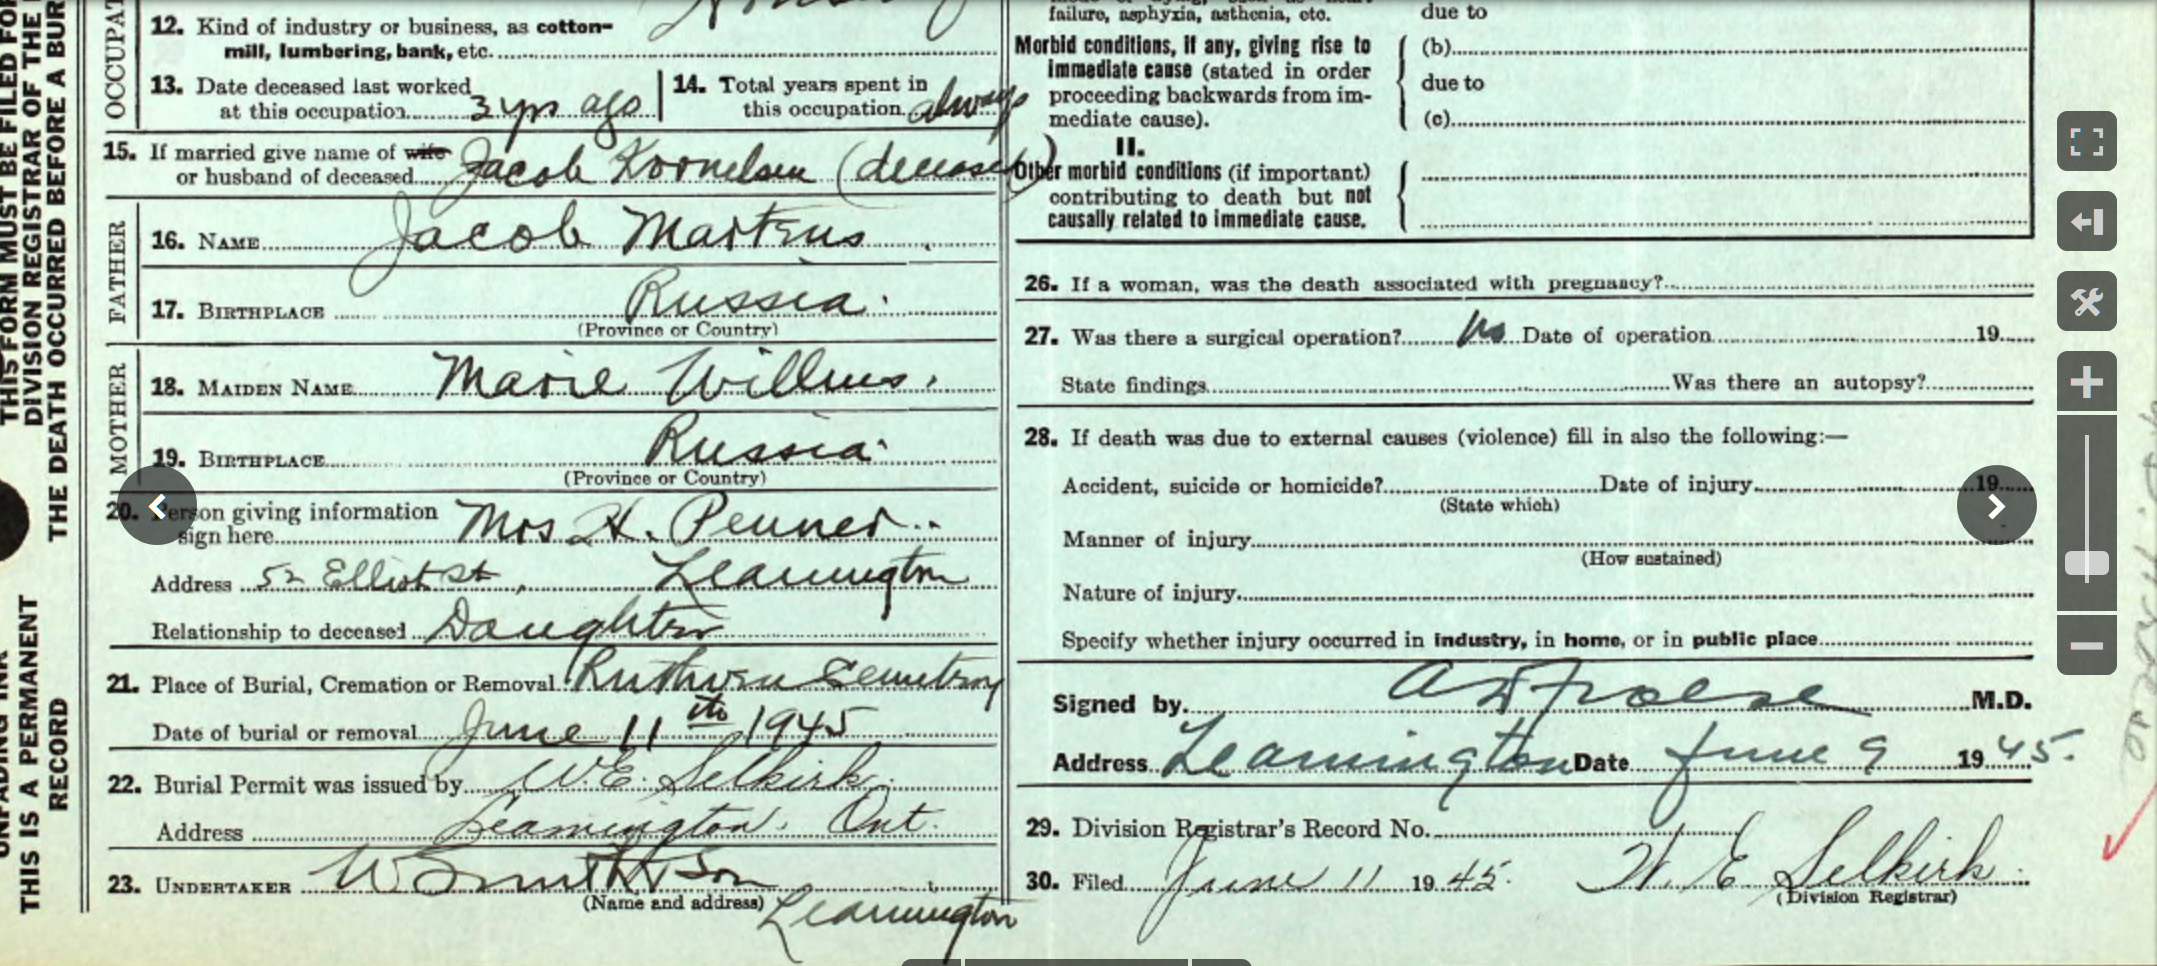 OCCUPAT
12. Kind of industry or business, as cotton-
mill, lumbering, bank, etc.
13. Date deceased last worked
at this occupation 3 yrs ago
14. Total years spent in
this occupation always
15. If married give name of wife
or husband of deceased Jacob Kornelsen (deceased)
FATHER
16. NAME Jacob Martens
17. BIRTHPLACE Russia
(Province or Country)
MOTHER
18. MAIDEN NAME Marie Willms
19. BIRTHPLACE Russia
(Province or Country)
20. Person giving information
sign here Mrs H. Penner
Address 52 Elliot St, Leamington
Relationship to deceased Daughter
21. Place of Burial, Cremation or Removal Ruthven Cemetery
Date of burial or removal June 11th 1945
22. Burial Permit was issued by W.E. Selkirk
Address Leamington. Ont.
23. UNDERTAKER W Smith & Son
(Name and address) Leamington
failure, asphyxia, asthenia, etc.
due to
Morbid conditions, if any, giving rise to
immediate cause (stated in order
proceeding backwards from im-
mediate cause).
(b)
due to
(c)
II.
Other morbid conditions (if important)
contributing to death but not
causally related to immediate cause.
26. If a woman, was the death associated with pregnancy?
27. Was there a surgical operation? No Date of operation 19
State findings Was there an autopsy?
28. If death was due to external causes (violence) fill in also the following:—
Accident, suicide or homicide? Date of injury 19
(State which)
Manner of injury
(How sustained)
Nature of injury
Specify whether injury occurred in industry, in home, or in public place
Signed by M.D.
Address Leamington Date June 9 1945.
29. Division Registrar's Record No.
30. Filed June 11 1945. W. E. Selkirk
(Division Registrar)
THIS FORM MUST BE FILED FOR
DIVISION REGISTRAR OF THE
THE DEATH OCCURRED BEFORE A BUR
THIS IS A PERMANENT
RECORD